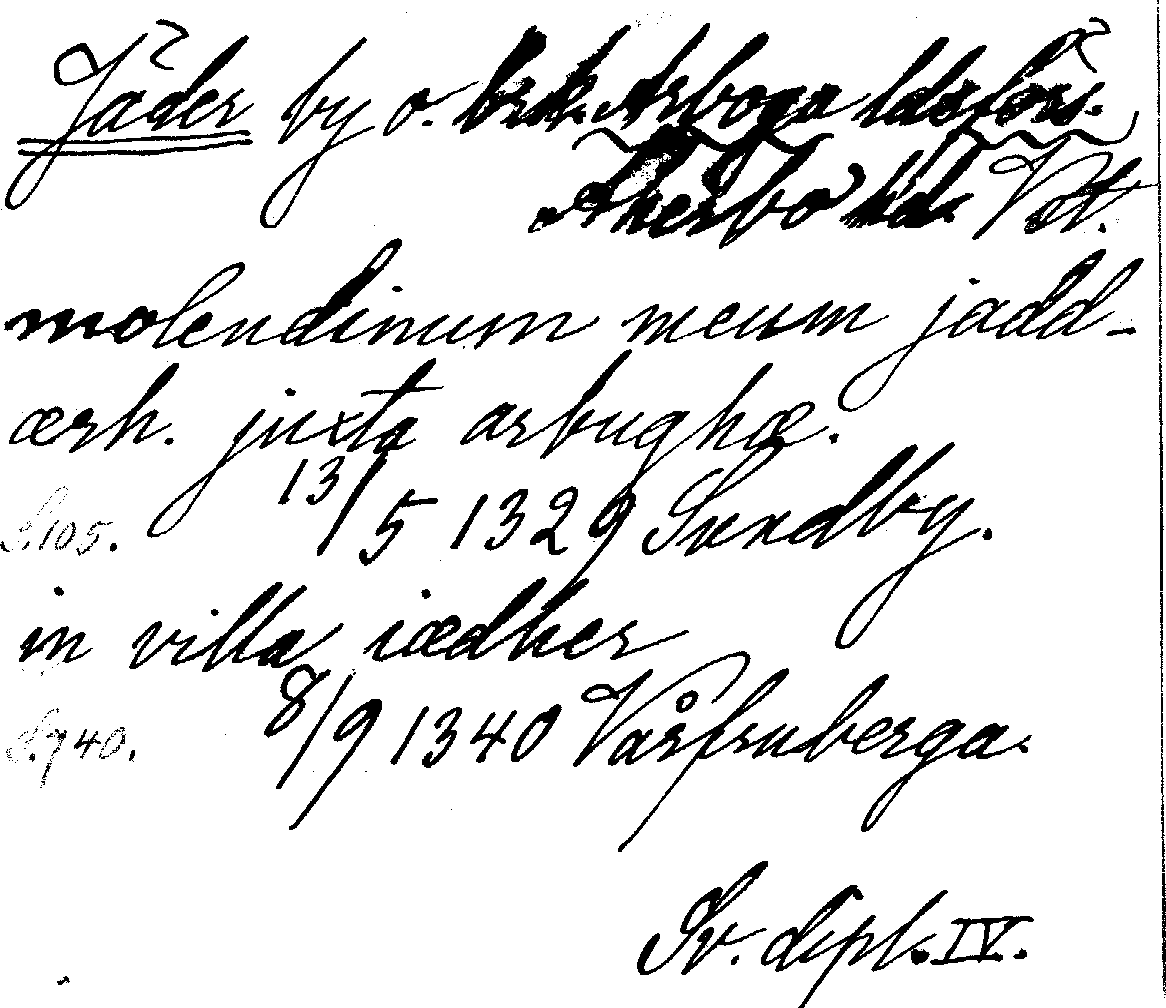 Jäder by o. brk. Arboga ldsförs.
Åkerbo hd. Vstl.
molendinum meum jadd-
ærh. juxta arbughæ.
13/5 1329 Sundby.
S. 105.
in villa iædher
8/9 1340 Vårfruberga.
S. 740.
Sv. dipl. IV.